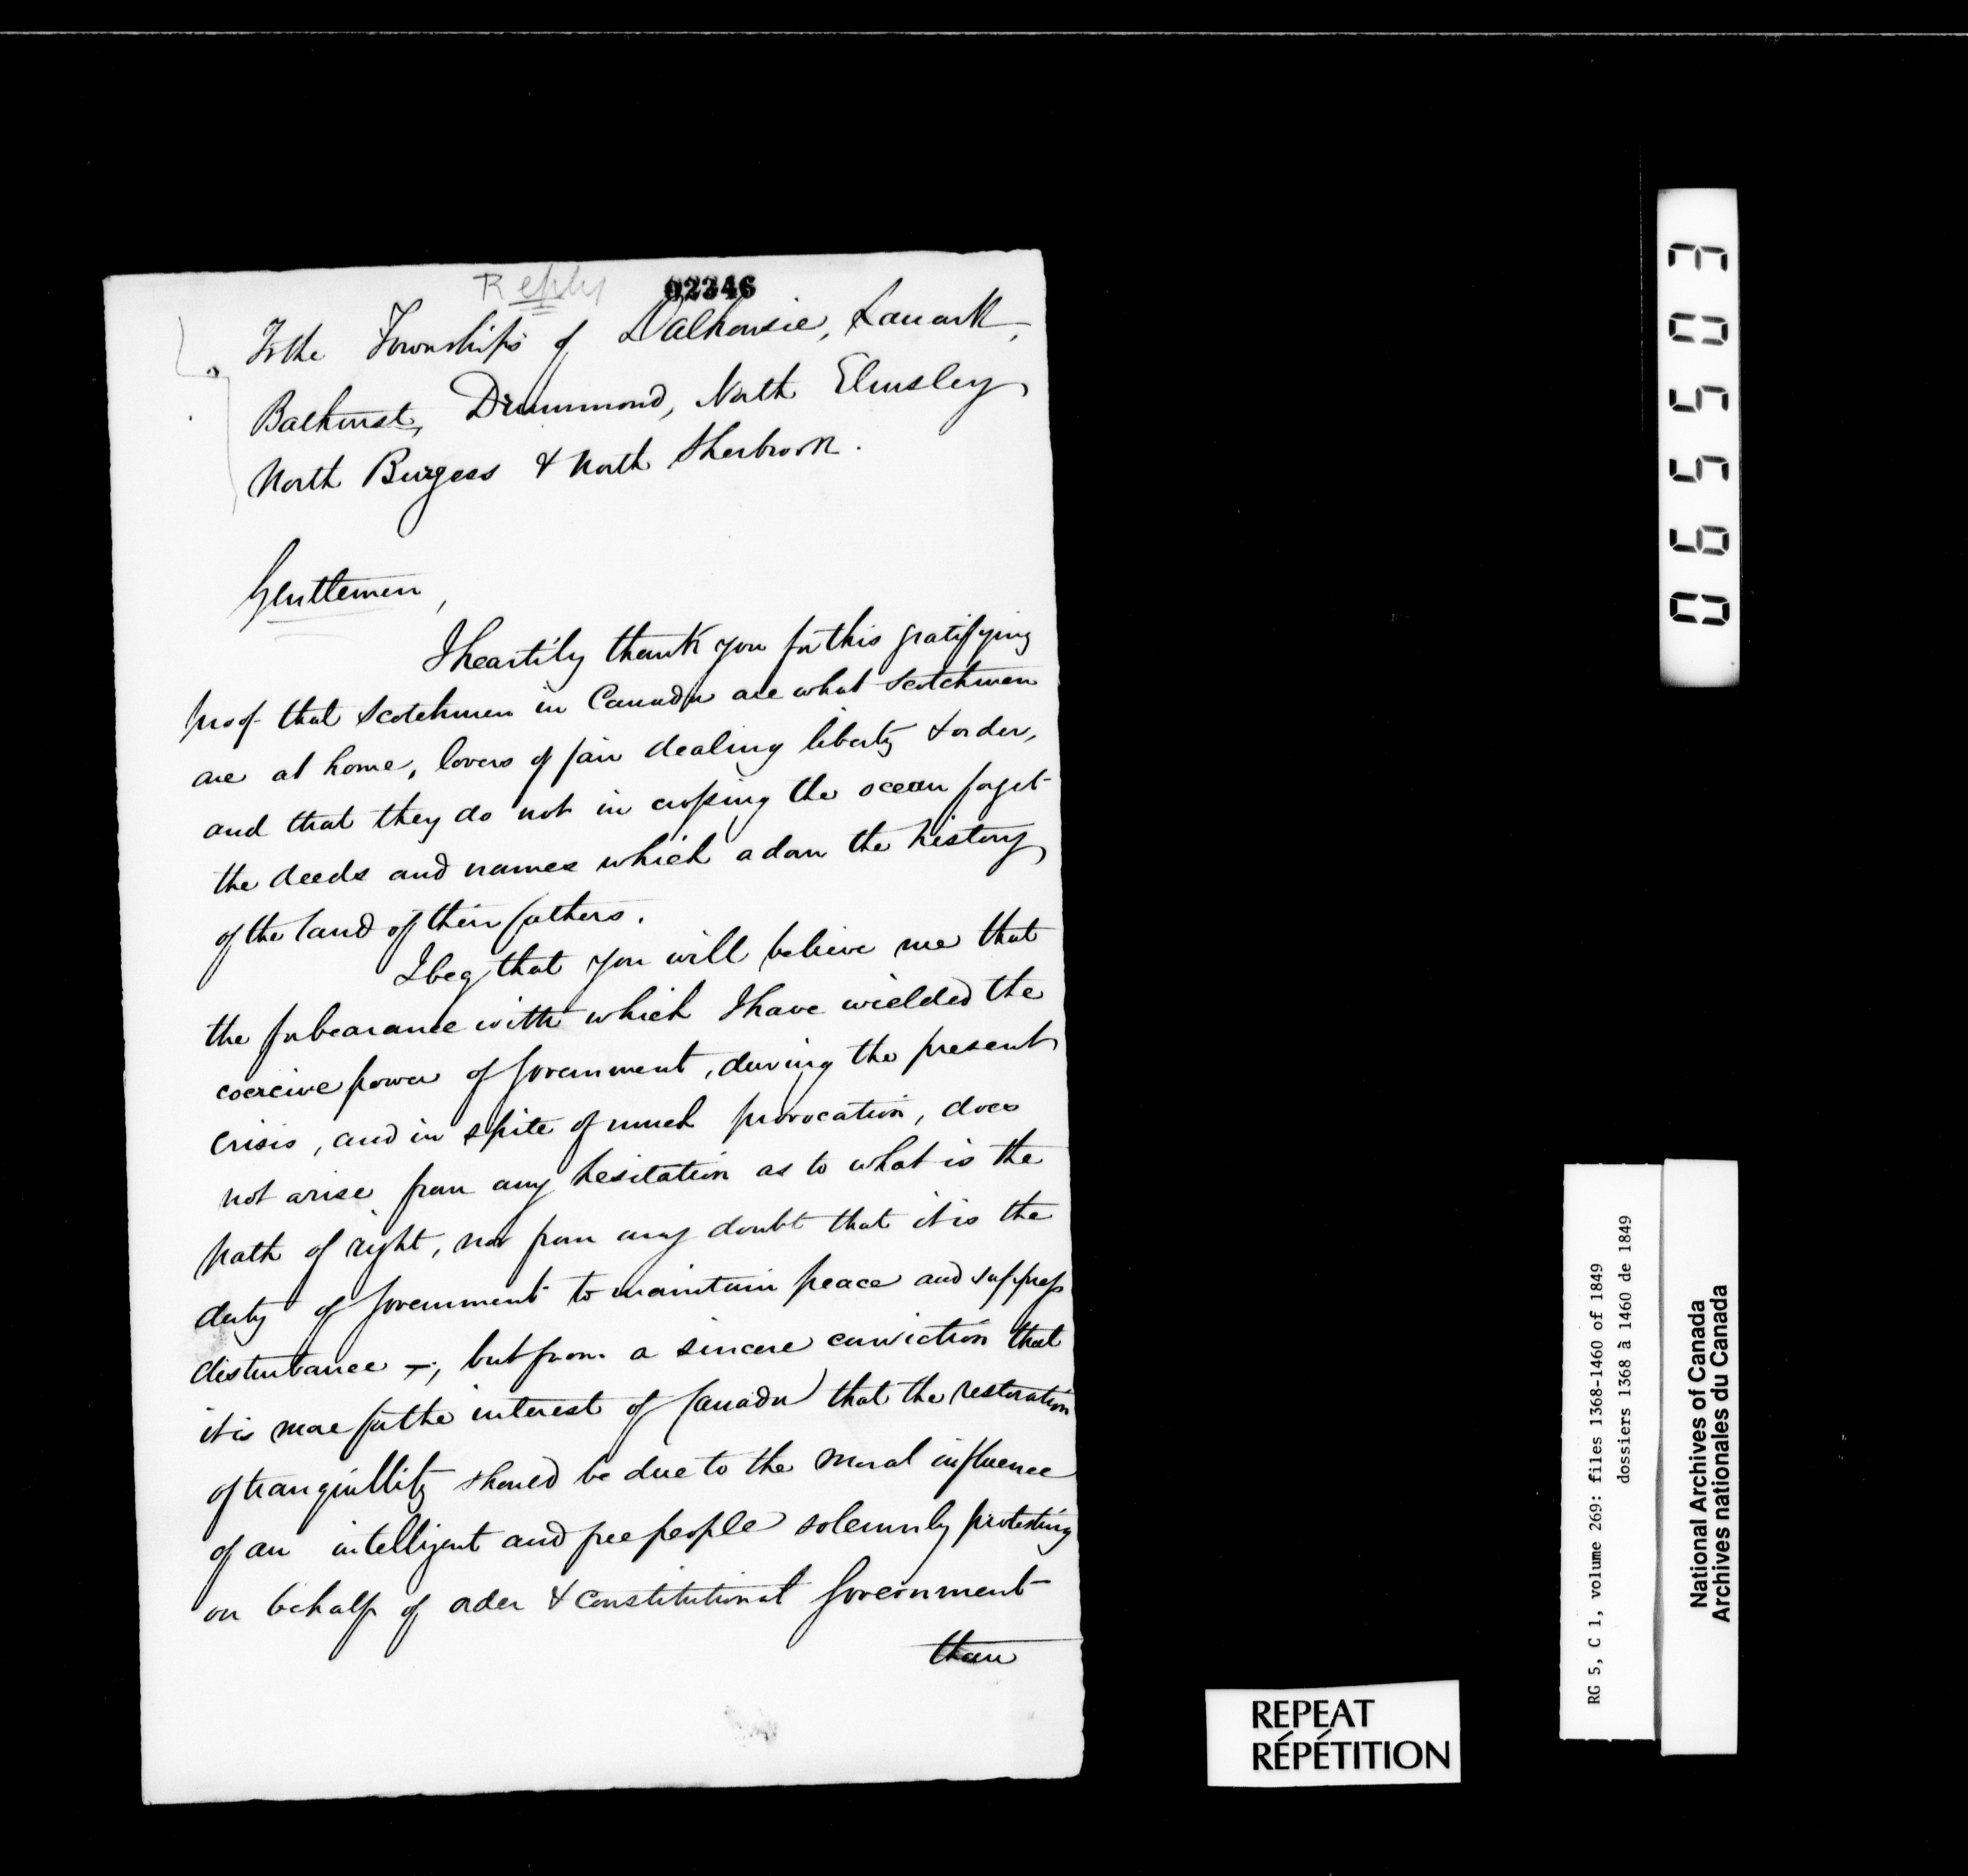 Reply
02346
To the Townships of Dalhousie, Lanark,
Bathurst, Drummond, North Elmsley
North Burgess & North Sherbrook.
Gentlemen,
I heartily thank you for this gratifying
proof that Scotchmen in Canada are what Scotchmen
are at home, lovers of fair dealing liberty & order,
and that they do not in crossing the ocean forget
the deeds and names which adorn the history
of the land of their fathers.
I beg that you will believe me that
the forbearance with which I have wielded the
coercive power of Government, during the present
crisis, and in spite of much provocation, does
not arise from any hesitation as to what is the
path of right, nor from any doubt that it is the
duty of Government to maintain peace and suppress
disturbance –, but from a sincere conviction that
it is more for the interest of Canada that the restoration
of tranquillity should be due to the moral influence
of an intelligent and free people solemnly protesting
on behalf of order & constitutional Government
than
065503
RG 5, C 1, volume 269: files 1368-1460 of 1849
dossiers 1368 à 1460 de 1849
National Archives of Canada
Archives nationales du Canada
REPEAT
RÉPÉTITION